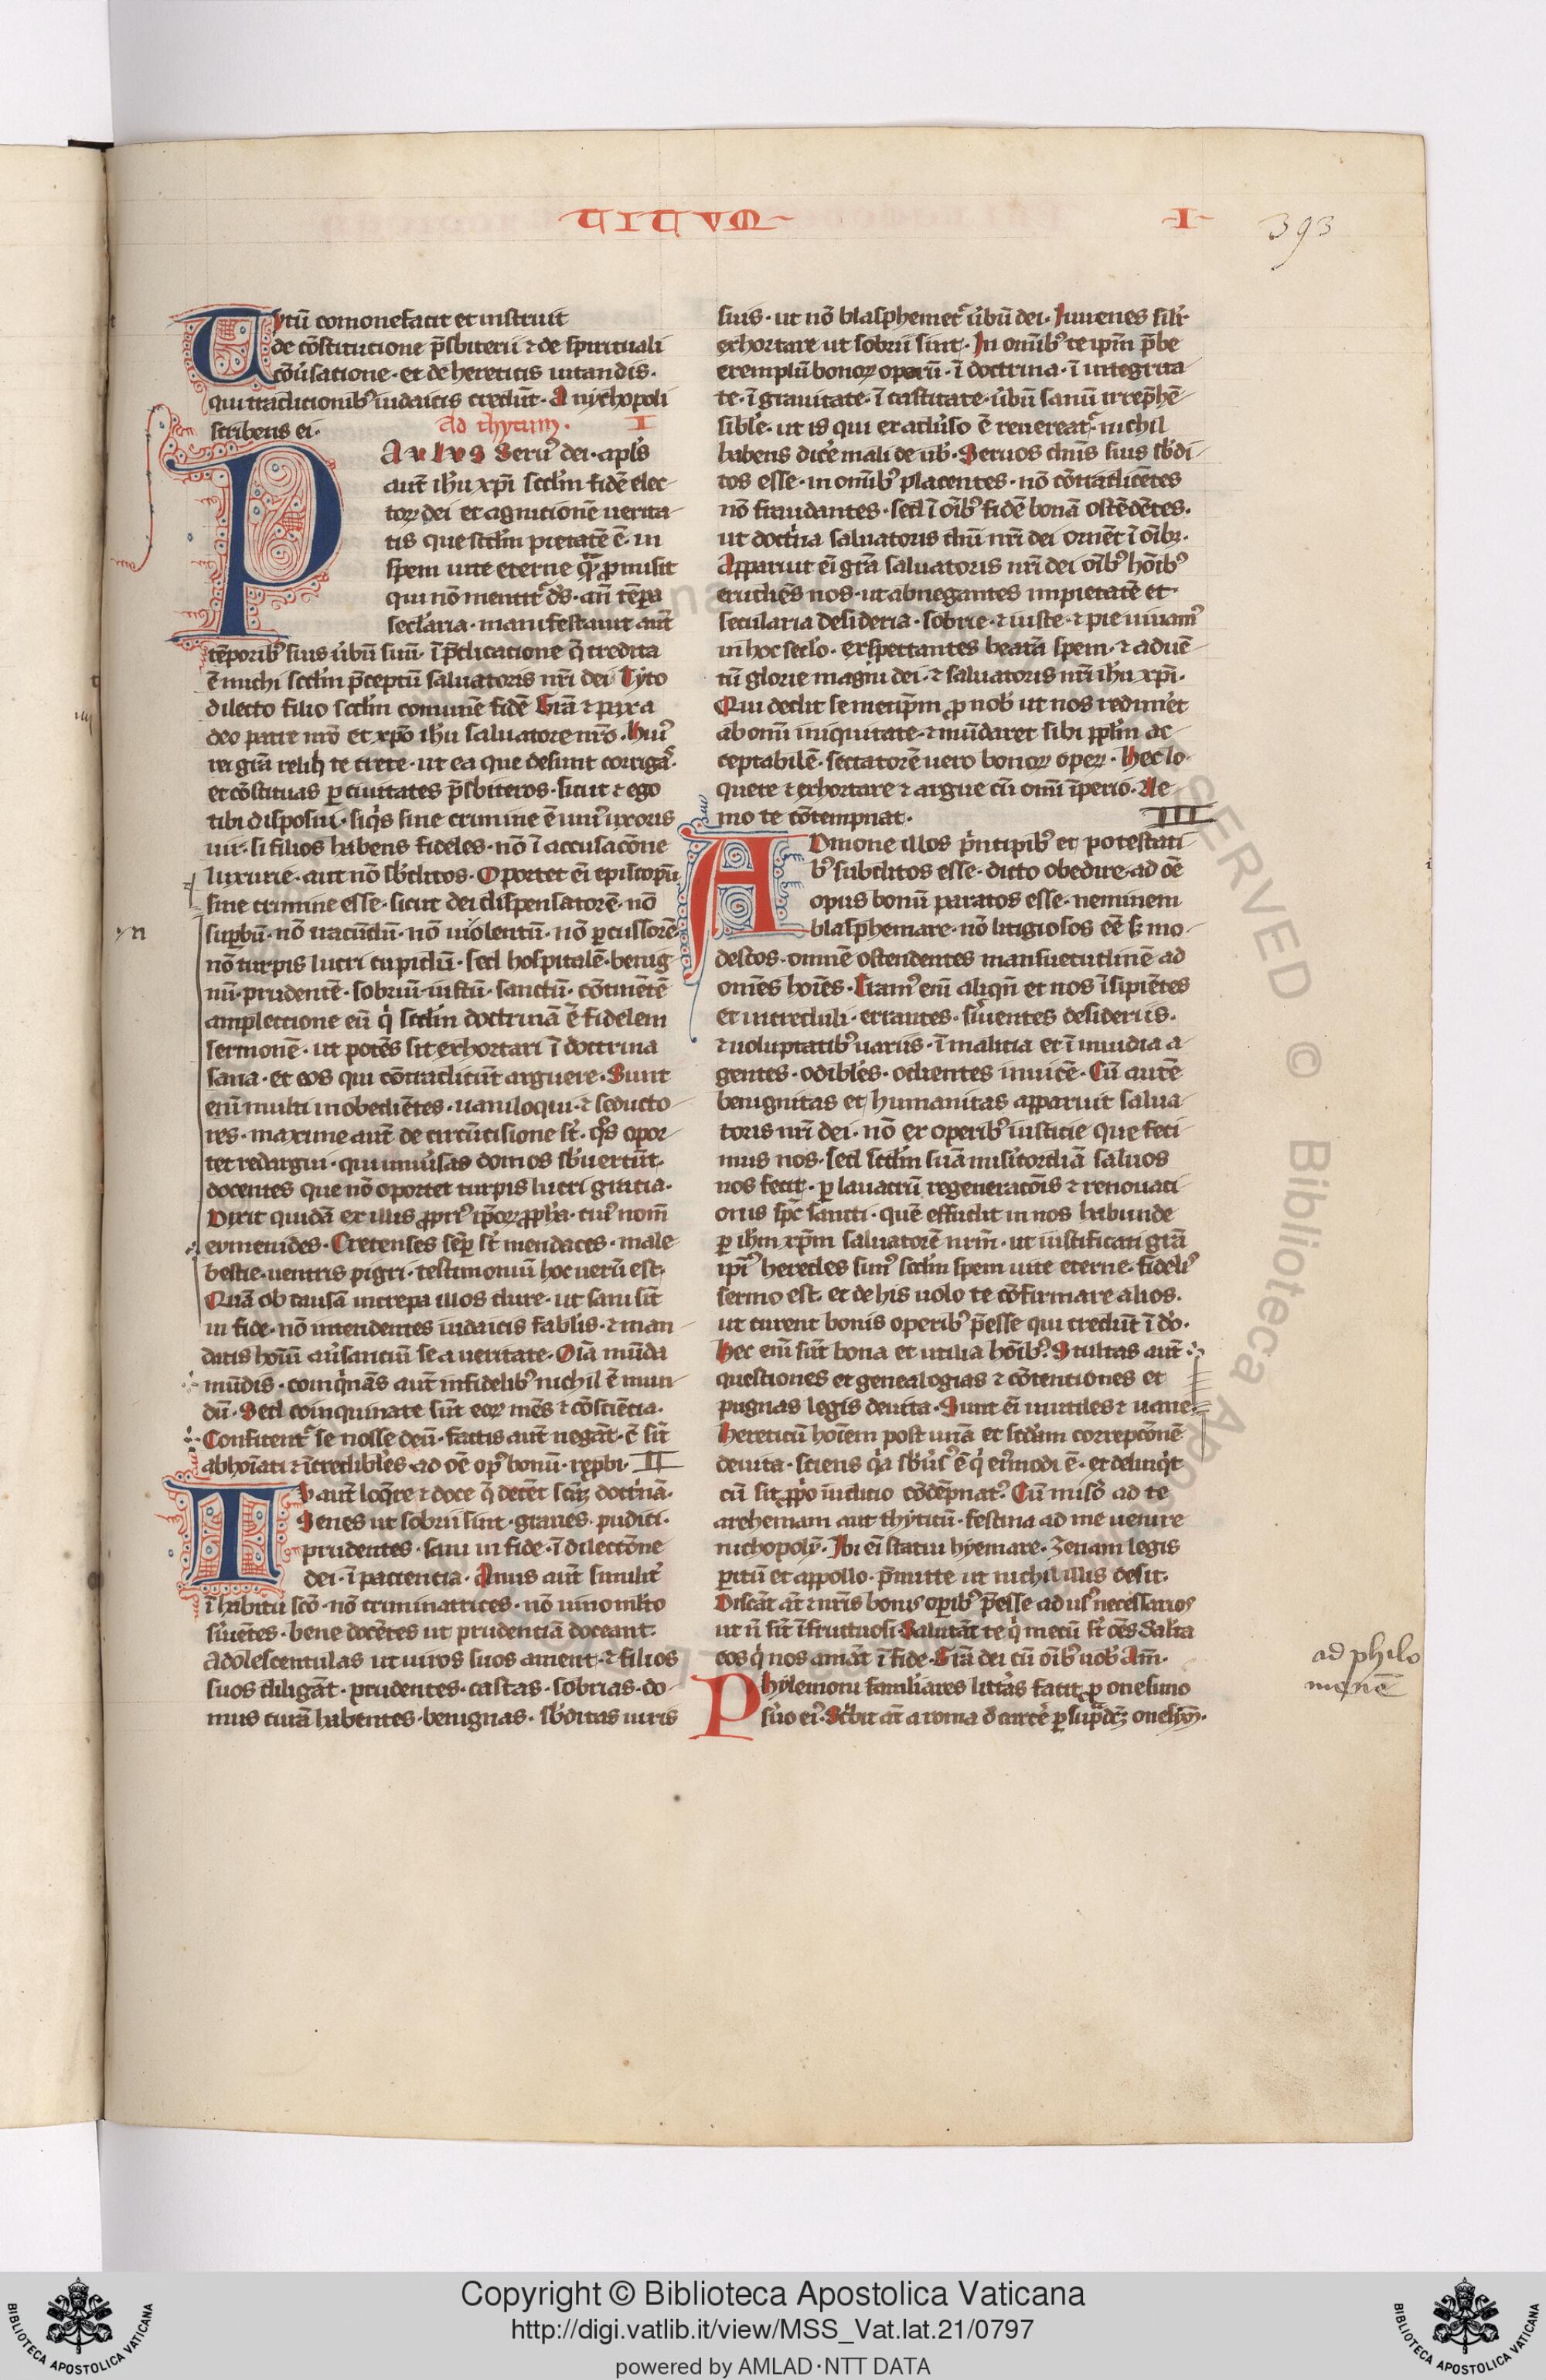 TITVM
I
393
Tytū comonefacit et instruit
de cōstitutione p̄sbiterii ⁊ de spirituali
cōu̾satione · et de hereticis uitandis ·
qui traditionib᷒ iudaicis credūt · A nychopoli
scribens ei · Ad thytum · I
PAVLVS Seru᷒ dei · apl̄s
aut̄ ih̄u xp̄i scd̄m fidē elec-
toꝝ dei et agnitionē uerita-
tis que scd̄m pietatē ē · in
spem uite eterne q̄ꝫ ꝓmisit
qui nō mentit᷑ d̄s · an̄ tēpa
secl̾aria · manifestauit aut̄
tēporib᷒ suis u̾bū suū · ī p̄dicatione q̄ credita
ē michi scd̄m p̄ceptū saluatoris nr̄i dei Tyto
dilecto filio scd̄m comunē fidē Gr̄a ⁊ pax a
deo patre nr̄o et xp̄o ih̄u saluatore nr̄o · hui᷒
rei gr̄a reliq̇ te crete · ut ea que desunt corrigas̾ ·
et cōstituas ꝑ ciuitates p̄sbiteros · sicut ⁊ ego
tibi disposui · siq̇s sine crimine ē uni᷒ uxoris
uir · si filios habens fideles · nō ī accusacōne
luxurie · aut nō sb̾ditos · Oportet eī episcopū
sine crimine esse · sicut dei dispensatorē · nō
suꝑbū · nō iracūdū · nō uiolentū · nō ꝑcussorē
nō turpis lucri cupidū · sed hospitalē · benig-
nū · prudentē · sobriū · iustū · sanctū · cōtinētē
amplectione eū q̇ scd̄m doctrinā ē fidelem
sermonē · ut potēs sit exhortari ī doctrina
sana · et eos qui cōtradicūt arguere · Sunt
enī multi inobediētes · uaniloqui · ⁊ seducto-
res · maxime aut̄ de circūcisione st̄ · q̇s opor-
tet redargui · qui uniu̾sas domos sb̾uertūt ·
docentes que nō oportet turpis lucri gratia ·
Dixit quidā ex illis ꝓpri᷒ ip̄coꝝ ꝓph̄a · cui᷒ nom̄
eumenides · Cretenses sēꝑ st̄ mendaces · male
bestie · uentris pigri · testimoniū hoc uerū est ·
Quā ob causā increpa illos dure · ut sani sīt
in fide · nō intendentes iudaicis fabl̾is · ⁊ man-
datis hoīū au̾santiū se a ueritate · Oīa mūda
mūdis · coinq̇natis aut̄ infidelib᷒ nichil ē mun-
dū · Sed coinquinate sūt eoꝝ mēs ⁊ cōsciētia ·
Confitent᷑ se nosse deū · factis aut̄ negāt · c̄ sīt
abhoīati ⁊ īcredibl̾es · ad oē op᷒ bonū · reꝓbi · II
Tv aut̄ loq̄re ⁊ doce q̄ decēt sanā doctrinā ·
Senes ut sobrii sint · graues · pudici ·
prudentes · sani in fide · ī dilectōne
dei · ī pacientia · Anus aut̄ similit̾
ī habitu scō · nō criminatrices · nō uino ml̾to
su̾uētes · bene docētes ut prudentiā doceant
Adolescentulas ut uiros suos ament · ⁊ filios
suos diligāt · prudentes · castas · sobrias · do-
mus curā habentes · benignas · sb̾ditas uiris
suis · ut nō blasphemet᷑ u̾bū dei · Juuenes sil̾r
exhortare ut sobrii sint · In omīb᷒ te ip̄m p̄be
exemplū bonoꝝ opeꝝ · ī doctrina · ī integrita-
te · ī grauitate · ī castitate · u̾bū sanū irrep̄hē-
sible̾ · ut is qui ex adu̾so ē reuereat᷑ · nichil
habens dice̾ mali de nob̾ · Seruos dn̄is suis sb̾di-
tos esse · in omīb᷒ placentes · nō cōtradicētes
nō fraudantes · sed ī oīb᷒ fidē bonā ostēdētes ·
ut doctrīa saluatoris dn̄i nr̄i dei ornēt ī oīb᷒ ·
Apparuit eī gr̄a saluatoris nr̄i dei oīb᷒ hoīb᷒
erudiēs nos · ut abnegantes impietatē et
secularia desideria · sobrie · ⁊ iuste · ⁊ pie uiuam᷒
in hoc secl̾o · exspectantes beatā spem · ⁊ aduē-
tū glorie magni dei · ⁊ saluatoris nr̄i ih̄u xp̄i ·
Qui dedit semetip̄m ꝓ nob̾ ut nos redime̾t
ab omī iniquitate · ⁊ mūdaret sibi ppl̄m ac-
ceptabilē · sectatorē uero bonoꝝ opeꝝ · Hec lo-
quere ⁊ exhortare ⁊ argue cū omī īperio · Ne-
mo te cōtempnat · III
ADmone illos p̄ncipib᷒ et potestati-
b᷒ subditos esse · dicto obedire · ad oē
opus bonū paratos esse · neminem
blasphemare · nō litigiosos eē sꝫ mo-
destos · omnē ostendentes mansuetudinē ad
omēs hoīes · Eram᷒ enī aliqn̄ et nos īsipiētes
et increduli · errantes · su̾uientes desideriis ·
⁊ uoluptatib᷒ uariis · ī malitia et ī inuidia a-
gentes · odibl̾es · odientes inuicē · Cū autē
benignitas et humanitas apparuit salua-
toris nr̄i dei · nō ex operib᷒ iusticie que feci-
mus nos · sed scd̄m suā misi̾cordiā saluos
nos fecit · ꝑ lauacrū regeneratōis ⁊ renouati-
onis sp̄c sancti · quē effudit in nos habunde
ꝑ ih̄m xp̄m saluatorē nr̄m · ut iustificati gr̄a
ipi᷒ heredes sim᷒ scd̄m spem uite eterne · fideli᷒
sermo est · et de his uolo te cōfirmare alios ·
ut curent bonis operib᷒ p̄esse qui credūt ī do̾ ·
Hec enī sūt bona et utilia hoīb᷒ · Stultas aut̄
questiones et genealogias ⁊ cōtentiones et
pugnas legis deuita · Sunt eī inutiles ⁊ uane ·
Hereticū hoīem post unā et scd̄am correptōnē
deuita · sciens q̇a sb̾u̾s᷒ ē q̇ ei᷒modi ē · et delinq̇t
cū sit ꝓpo̾ iudicio cōdēpnat᷒ · Cū miso̾ ad te
arthemam aut thyticū · festina ad me uenire
nichopolȳ · Ibi eī statui hyemare · Zenam legis
ꝑitū et appollo · p̄mitte ut nichil illis desit ·
Discāt at̄ ⁊ nr̄is bonis oꝑib᷒ p̄esse ad us᷒ necessarios
ut n̄ sīt īfructuosi · Salutāt te q̇ mecū st̄ oēs Salīta
eos q̇ nos amāt ī fide · Gr̄a dei cū oīb᷒ uob̾ Am̄ ·
Phylemoni familiares litt̾as facit ꝓ onesimo
su̾o ei᷒ · Sc̾bit at̄ a roma d̾ carce̾ ꝑ sup̄dc̄m onesīm ·
ad philo
monē
Copyright © Biblioteca Apostolica Vaticana
http://digi.vatlib.it/view/MSS_Vat.lat.21/0797
powered by AMLAD·NTT DATA
BIBLIOTECA APOSTOLICA VATICANA
BIBLIOTECA APOSTOLICA VATICANA